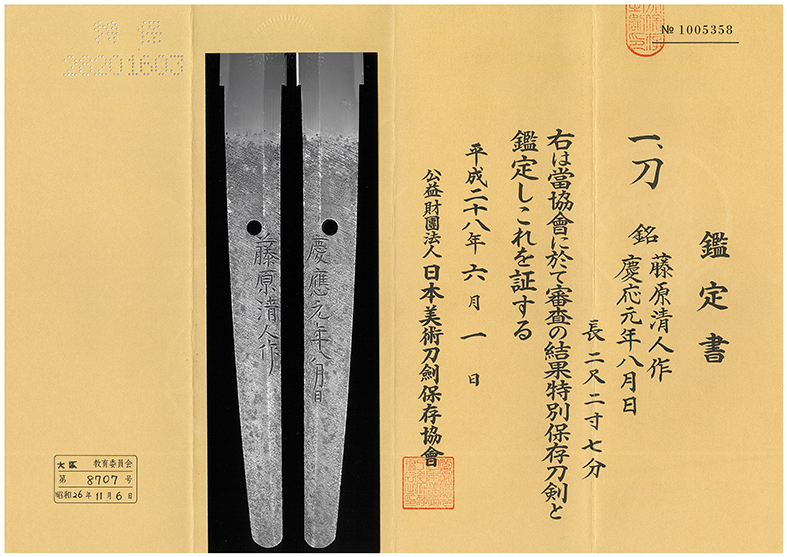 № 1005358
鑑定書
一、刀
銘
藤原清人作
慶応元年八月日
長二尺二寸七分
右は當協會に於て審査の結果特別保存刀剣と
鑑定しこれを証する
平成二十八年六月一日
公益財團法人 日本美術刀劍保存協會
慶應元年八月日
藤原清人作
特保
28201603
大阪 教育委員会
第 8707 号
昭和26年11月6日